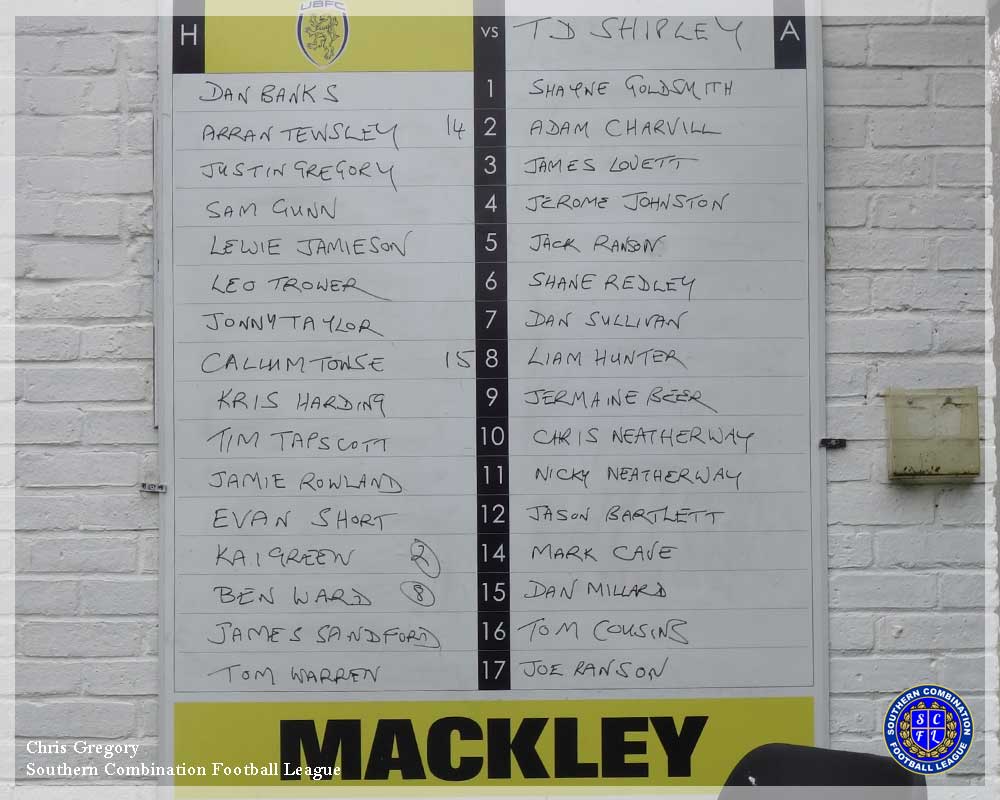 UBFC
H vs TD SHIPLEY A
DAN BANKS 1 SHAYNE GOLDSMITH
ARRAN TEWSLEY 14 2 ADAM CHARVILL
JUSTIN GREGORY 3 JAMES LOVETT
SAM GUNN 4 JEROME JOHNSTON
LEWIE JAMIESON 5 JACK RANSON
LEO TROWER 6 SHANE REDLEY
JONNY TAYLOR 7 DAN SULLIVAN
CALLUM TOWSE 15 8 LIAM HUNTER
KRIS HARDING 9 JERMAINE BEER
TIM TAPSCOTT 10 CHRIS NEATHERWAY
JAMIE ROWLAND 11 NICKY NEATHERWAY
EVAN SHORT 12 JASON BARTLETT
KAI GREEN 2 14 MARK CAVE
BEN WARD 8 15 DAN MILLARD
JAMES SANDFORD 16 TOM COUSINS
TOM WARREN 17 JOE RANSON
MACKLEY
Chris Gregory
Southern Combination Football League
SOUTHERN COMBINATION
S C
F L
FOOTBALL LEAGUE